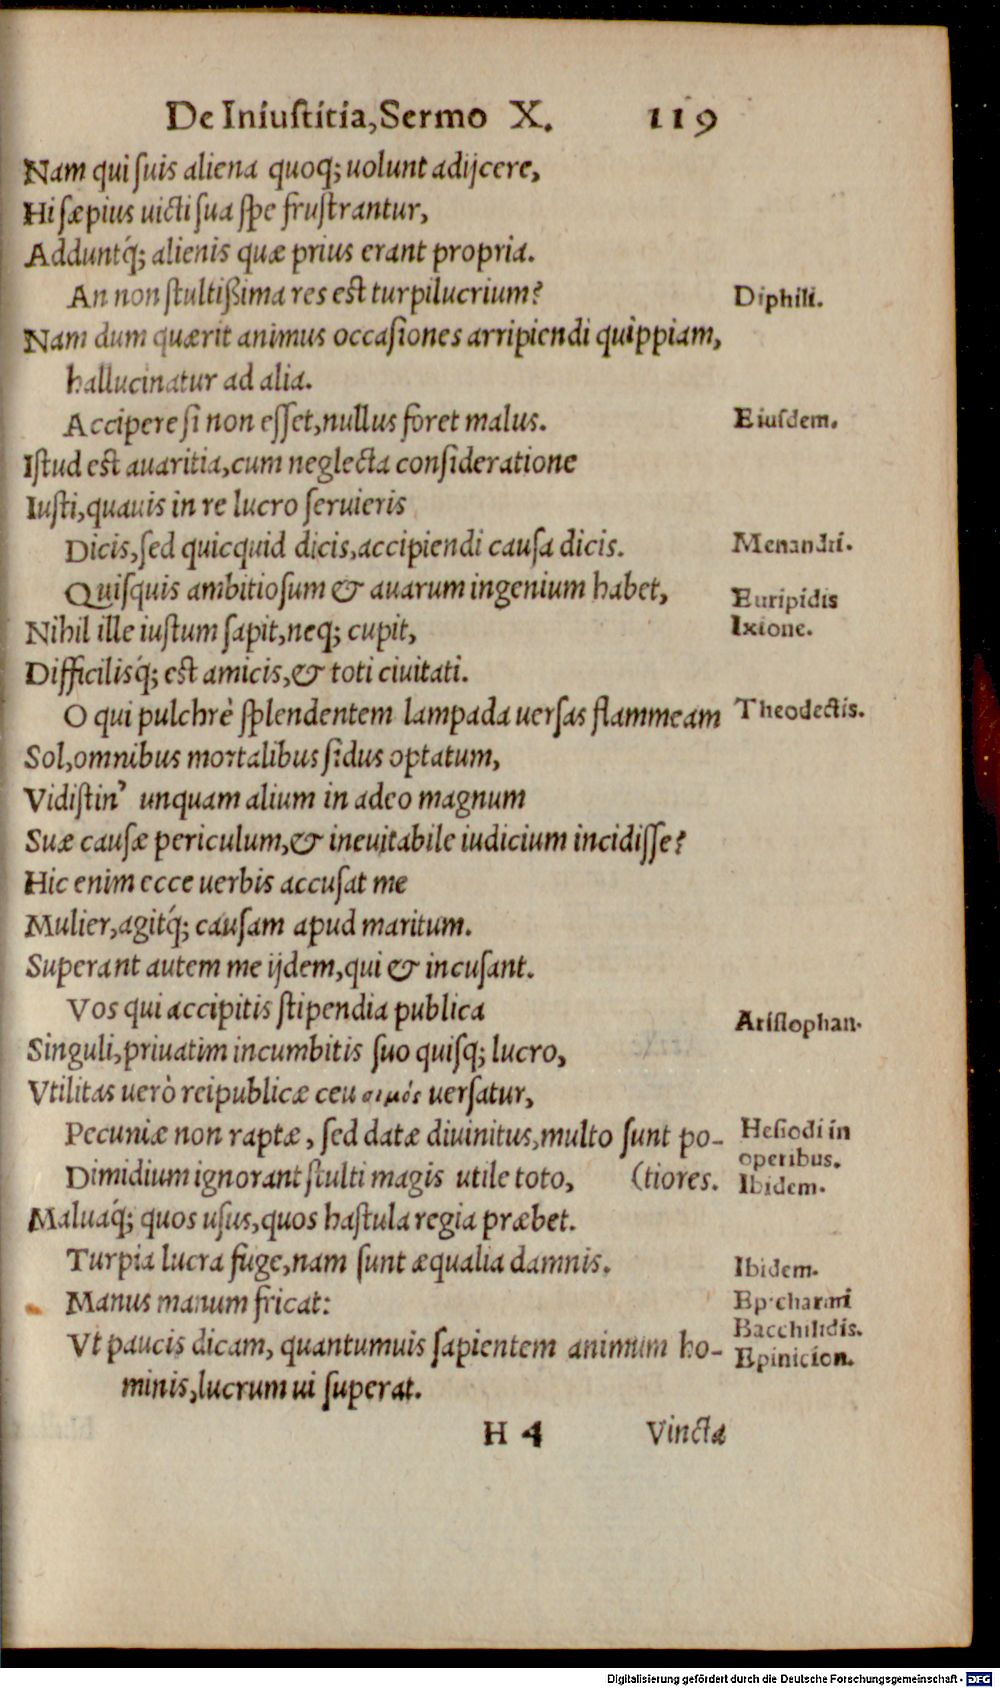 De Iniustitia, Sermo X. 119
Nam qui suis aliena quoq; uolunt adijcere,
Hi sæpius uicti sua spe frustrantur,
Adduntq́; alienis quæ prius erant propria.
An non stultißima res est turpilucrium? Diphili.
Nam dum quærit animus occasiones arripiendi quippiam,
hallucinatur ad alia.
Accipere si non esset, nullus foret malus. Eiusdem.
Istud est auaritia, cum neglecta consideratione
Iusti, quauis in re lucro seruieris
Dicis, sed quicquid dicis, accipiendi causa dicis. Menandri.
Quisquis ambitiosum & auarum ingenium habet, Euripidis
Nihil ille iustum sapit, neq; cupit, Ixione.
Difficilisq́; est amicis, & toti ciuitati.
O qui pulchrè splendentem lampada uersas flammeam Theodectis.
Sol, omnibus mortalibus sidus optatum,
Vidistin' unquam alium in adeo magnum
Suæ causæ periculum, & ineuitabile iudicium incidisse?
Hic enim ecce uerbis accusat me
Mulier, agitq́; causam apud maritum.
Superant autem me ijdem, qui & incusant.
Vos qui accipitis stipendia publica Aristophan.
Singuli, priuatim incumbitis suo quisq; lucro,
Vtilitas uerò reipublicæ ceu uersatur,
Pecuniæ non raptæ, sed datæ diuinitus, multo sunt po- Hesiodi in
operibus.
Dimidium ignorant stulti magis utile toto, (tiores. Ibidem.
Maluaq́; quos usus, quos hastula regia præbet.
Turpia lucra fuge, nam sunt æqualia damnis. Ibidem.
Manus manum fricat: Epicharmi
Bacchilidis.
Vt paucis dicam, quantumuis sapientem animum ho- Epinicion.
minis, lucrum ui superat.
H 4 Vincta
Digitalisierung gefördert durch die Deutsche Forschungsgemeinschaft - DFG